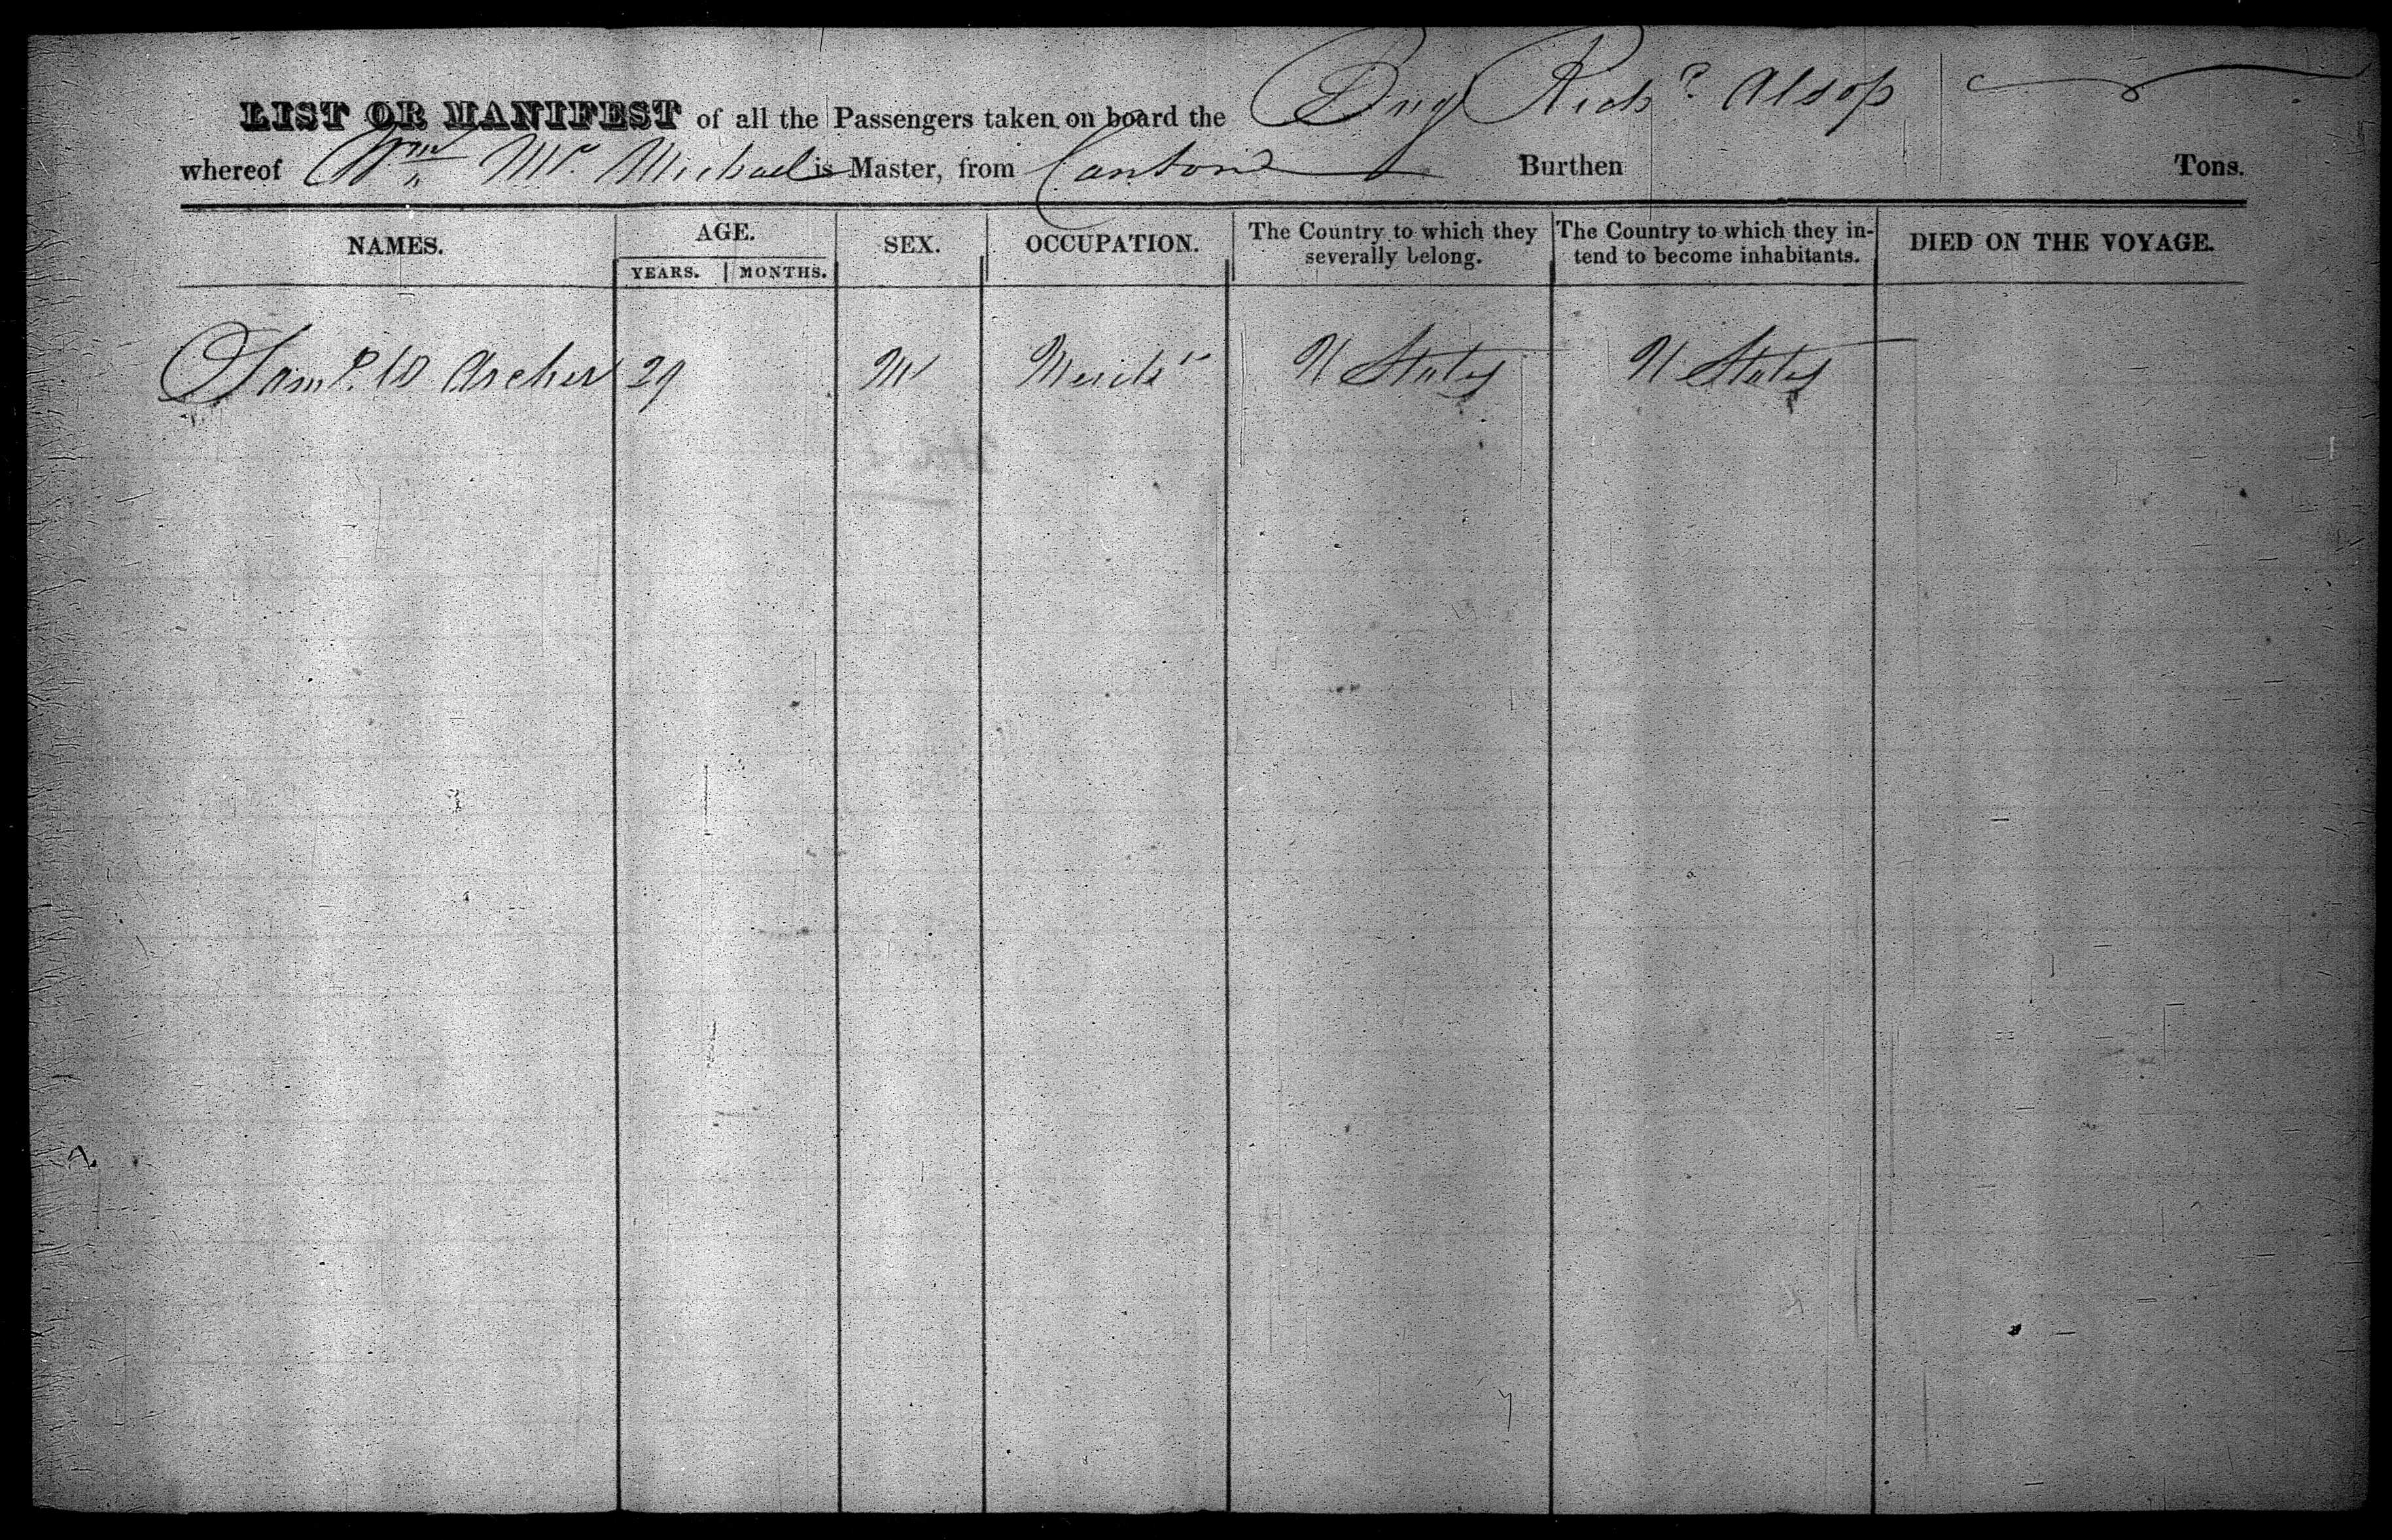 LIST OR MANIFEST of all the Passengers taken on board the Brig Richd Alsop
whereof Wm Mc Michael is Master, from Canton Burthen Tons.
NAMES. AGE. SEX. OCCUPATION. The Country to which they severally belong. The Country to which they intend to become inhabitants. DIED ON THE VOYAGE.
YEARS. MONTHS.
Saml W Archer 29 M Mercht U States U States